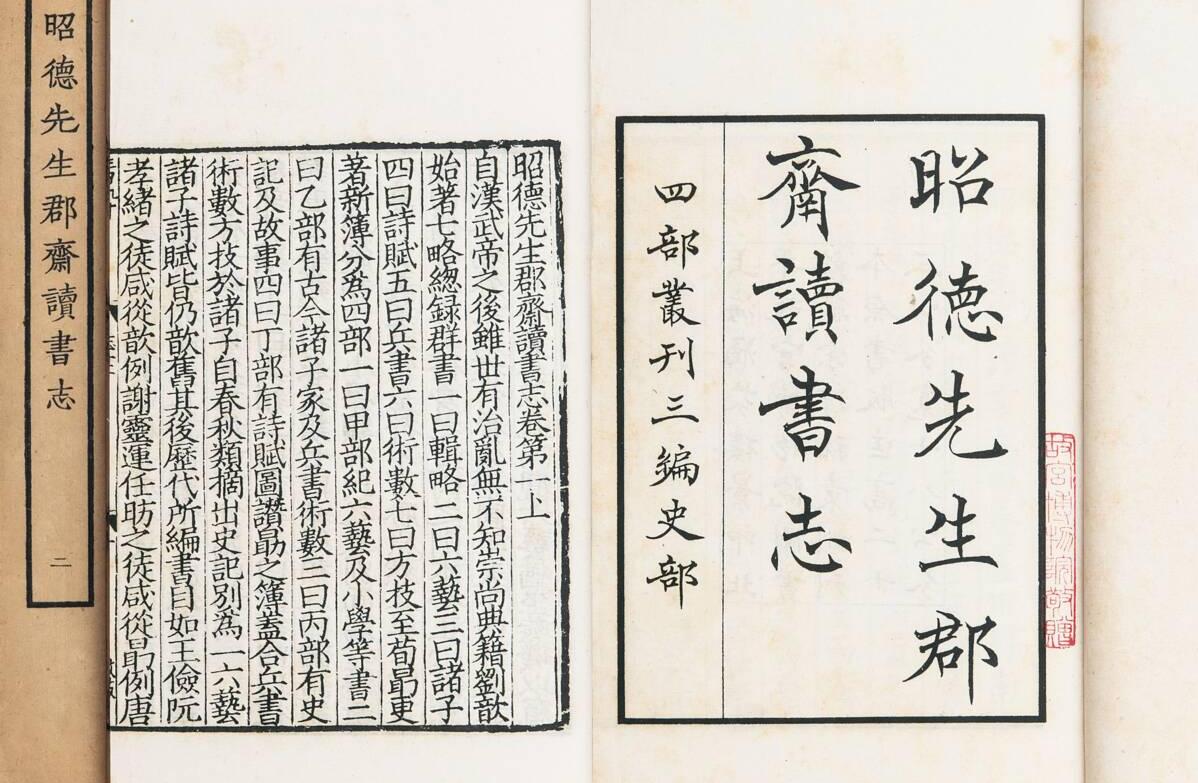 昭德先生郡
齋讀書志
四部叢刊三編史部
故宮博物院敬贈
昭德先生郡齋讀書志卷第一上
自漢武帝之後雖世有治亂無不知崇尚典籍劉歆
始著七略總録群書一曰輯略二曰六藝三曰諸子
四曰詩賦五曰兵書六曰術數七曰方技至荀勗更
著新簿分爲四部一曰甲部紀六藝及小學等書二
曰乙部有古今諸子家及兵書術數三曰丙部有史
記及故事四曰丁部有詩賦圖讚勗之簿蓋合兵書
術數方技於諸子自春秋類摘出史記別爲一六藝
諸子詩賦皆仍歆舊其後歷代所編書目如王儉阮
孝緒之徒咸從歆例謝靈運任昉之徒咸從勗例唐
昭德先生郡齋讀書志 二